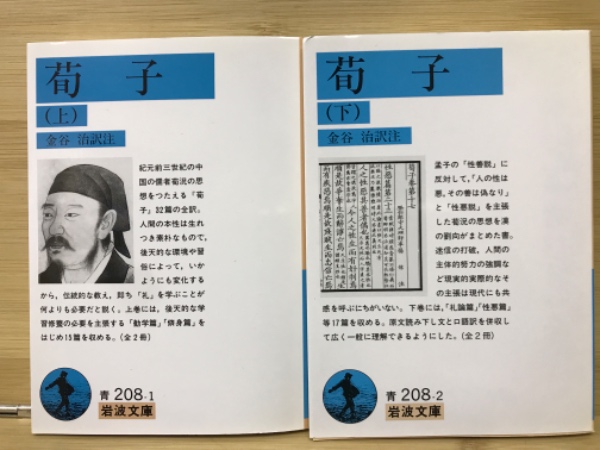 荀 子
(上)
金谷 治訳注
紀元前三世紀の中
国の儒者荀況の思
想をつたえる「荀
子」32篇の全訳。
人間の本性は生れ
つき素朴なもので、
後天的な環境や習
俗によって、いか
ようにも変化する
から、伝統的な教え、即ち「礼」を学ぶことが
何よりも必要だと説く。上巻には、後天的な学
習修養の必要を主張する「勧学篇」「脩身篇」を
はじめ15篇を収める。(全2冊)
青 208-1
岩波文庫
荀 子
(下)
金谷 治訳注
荀子巻第十七
性悪篇第二十三
孟子の「性善説」に
反対して、「人の性は
悪、その善は偽なり」
と「性悪説」を主張
した荀況の思想を漢
の劉向がまとめた書。
迷信の打破、人間の
主体的努力の強調な
ど現実的実際的なそ
の主張は現代にも共
感を呼ぶにちがいない。下巻には、「礼論篇」「性悪篇」
等17篇を収める。原文読み下し文と口語訳を併収し
て広く一般に理解できるようにした。(全2冊)
青 208-2
岩波文庫